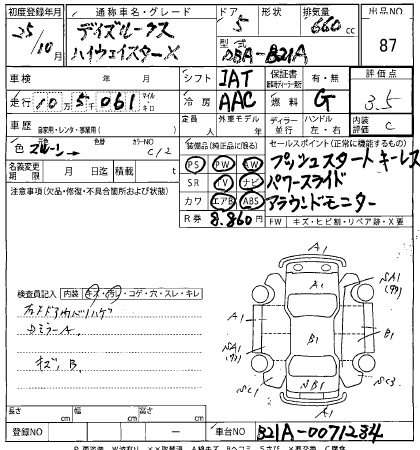 初度登録年月 通称車名・グレード ドア 形状 排気量 出品NO
25/10月 デイズルークス ハイウェイスターX 5 660cc 87
型式 DBA-B21A
車検 年 月 シフト IAT 保証書 有・無 評価点
走行 10万5千061 マイル・キロ 冷房 AAC 燃料 G 3.5
車歴 自家用・レンタ・事業用( ) 定員 人 外車モデル 年 ディーラー 並行 ハンドル 左・右 内装評価 C
色 色替 カラーNO C12 装備品(純正品に限る) セールスポイント(正常に機能するもの)
PS PW AW プッシュスタート キーレス
名義変更期限 月 日迄 積載 t SR TV ナビ パワースライド
注意事項(欠品・修復・不具合箇所および状態) カワ エアB ABS アラウンドモニター
R券 8.860円 FW キズ・ヒビ割・リペア跡・X要
検査員記入 内装 キズ・汚レ・コゲ・穴・スレ・キレ
ミラーA
キズ B
A1
A1
SA1
A1
B1
SA1
B1
A1
SC1
NB1
SC3
A1
長さ cm 幅 cm 高さ cm
登録NO 車台NO B21A-0071234